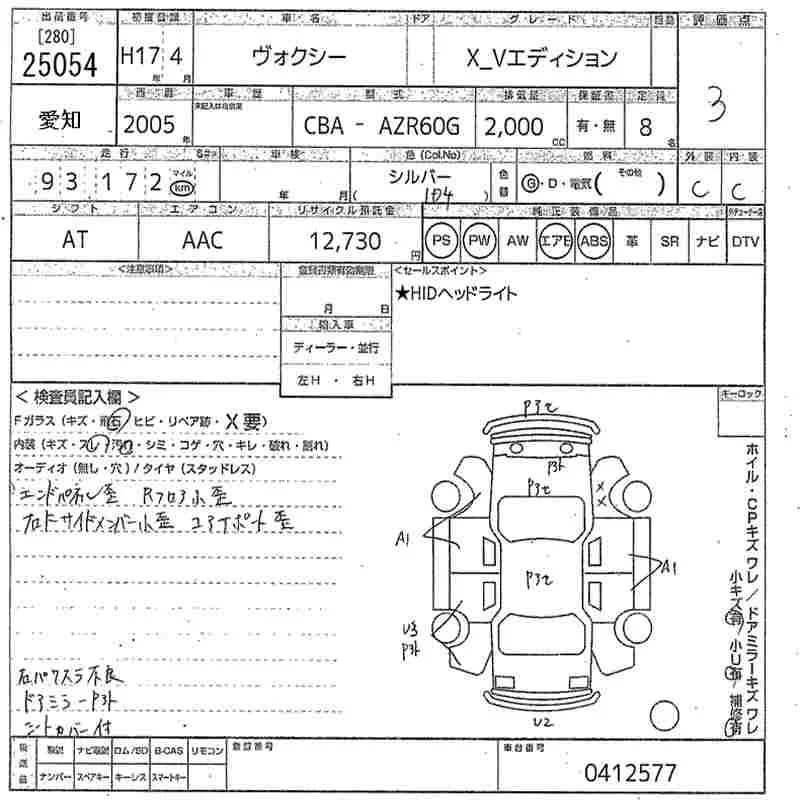 出品番号 初度登録 車名 ドア グレード 評価点
[280]
25054 H17 4 ヴォクシー X_Vエディション 3
年 月
愛知 車歴 型式 排気量 保証書 定員
2005 年 CBA - AZR60G 2,000 cc 有・無 8 名
走行 車検 色(Col.No) 色替 燃料 外装 内装
93,172 マイル km 年 月 シルバー 1D4 G・D・電気( その他 ) C C
シフト エアコン リサイクル預託金 純正装備品
AT AAC 12,730 円 PS PW AW エアB ABS 革 SR ナビ DTV
<注意事項> <セールスポイント>
月 日 ★HIDヘッドライト
輸入車
ディーラー・並行
左H ・ 右H
キーロック
<検査員記入欄>
Fガラス(キズ・飛石・ヒビ・リペア跡・X要)
内装(キズ・スレ・汚れ・シミ・コゲ・穴・キレ・破れ・割れ)
オーディオ(無し・穴)/タイヤ(スタッドレス)
エンドパネル歪 Rフロア小歪
右サイドメンバー小歪
P3セ
P3ト
P3セ
X
X
A1
A1
P3セ
U3
P3ト
U2
ホイル・CPキズワレ/ドアミラーキズワレ
小キズ有/小U有/補修有
ドアミラーP3ト
シートカバー付
取説 ナビ取説 ロム/SD B-CAS リモコン 登録番号 車台番号
ナンバー スペアキー キーレス スマートキー
0412577